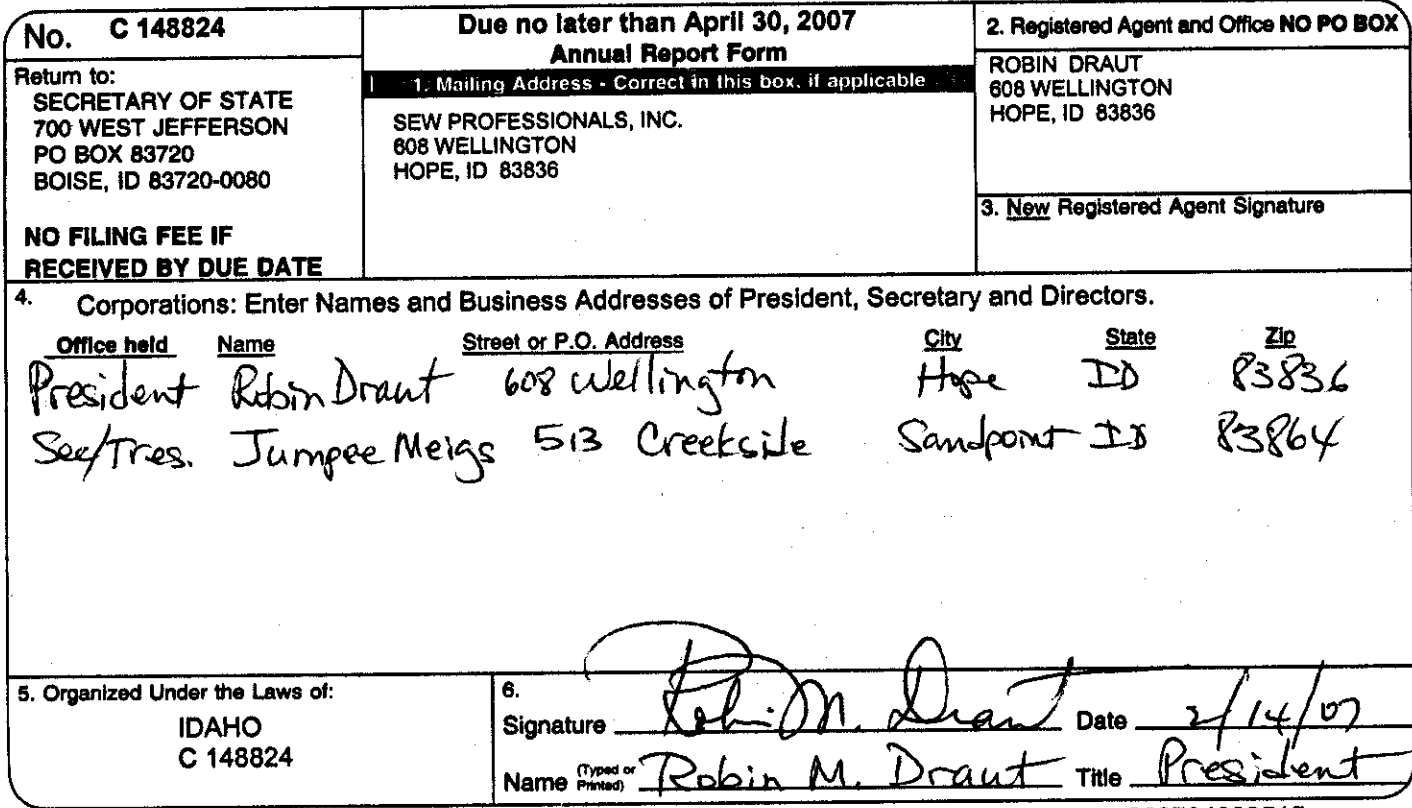 No. C 148824
Return to:
SECRETARY OF STATE
700 WEST JEFFERSON
PO BOX 83720
BOISE, ID 83720-0080
NO FILING FEE IF
RECEIVED BY DUE DATE
Due no later than April 30, 2007
Annual Report Form
1. Mailing Address - Correct in this box, if applicable
SEW PROFESSIONALS, INC.
608 WELLINGTON
HOPE, ID 83836
2. Registered Agent and Office NO PO BOX
ROBIN DRAUT
608 WELLINGTON
HOPE, ID 83836
3. New Registered Agent Signature
4. Corporations: Enter Names and Business Addresses of President, Secretary and Directors.
Office held Name Street or P.O. Address City State Zip
President Robin Draut 608 Wellington Hope ID 83836
Sec/Tres. Jumpee Meigs 513 Creekside Sandpoint ID 83864
5. Organized Under the Laws of:
IDAHO
C 148824
6.
Signature Robin M. Draut Date 2/14/07
Name (Typed or Printed) Robin M. Draut Title President